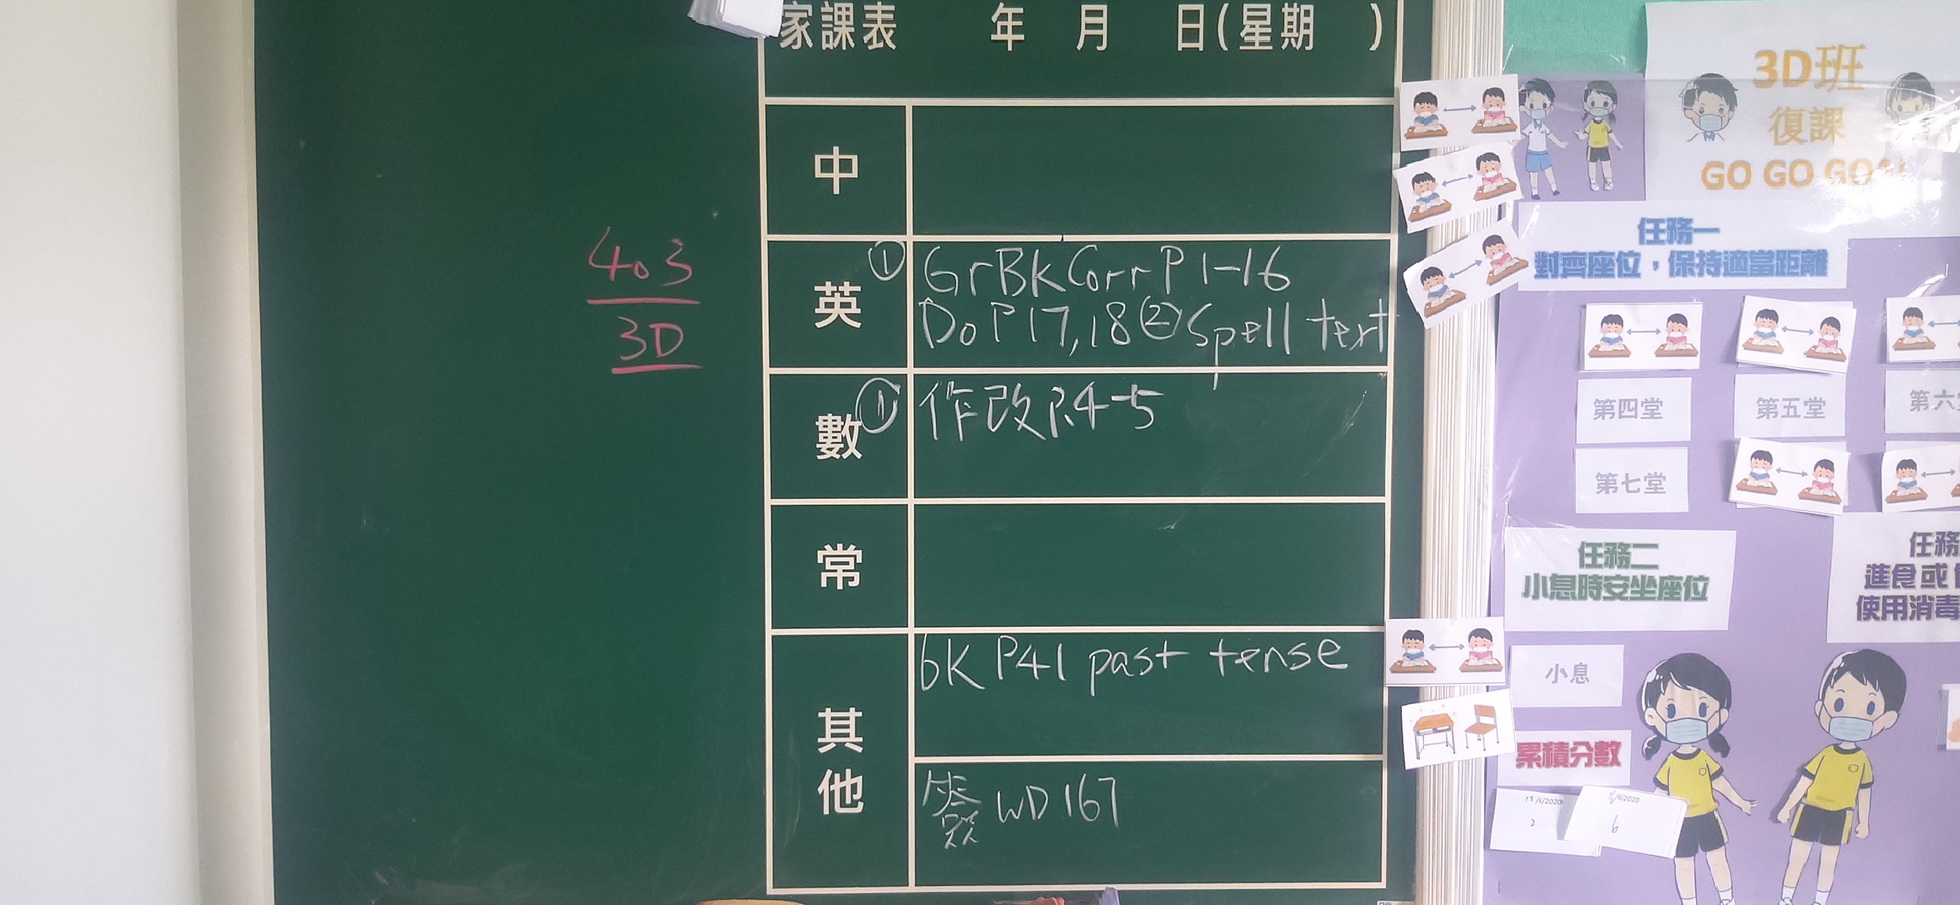 家課表 年 月 日(星期 )
中
英
① GrBk Corr P1-16
Do P17,18 ② Spell text
數
① 作改 P.4-5
常
其他
bk P41 past tense
簽 WD 167
403
3D
3D班
復課
GO GO GOAL
任務一
對齊座位，保持適當距離
第四堂
第五堂
第六
第七堂
任務二
小息時安坐座位
任務
進食或
使用消毒
小息
累積分數
2
6